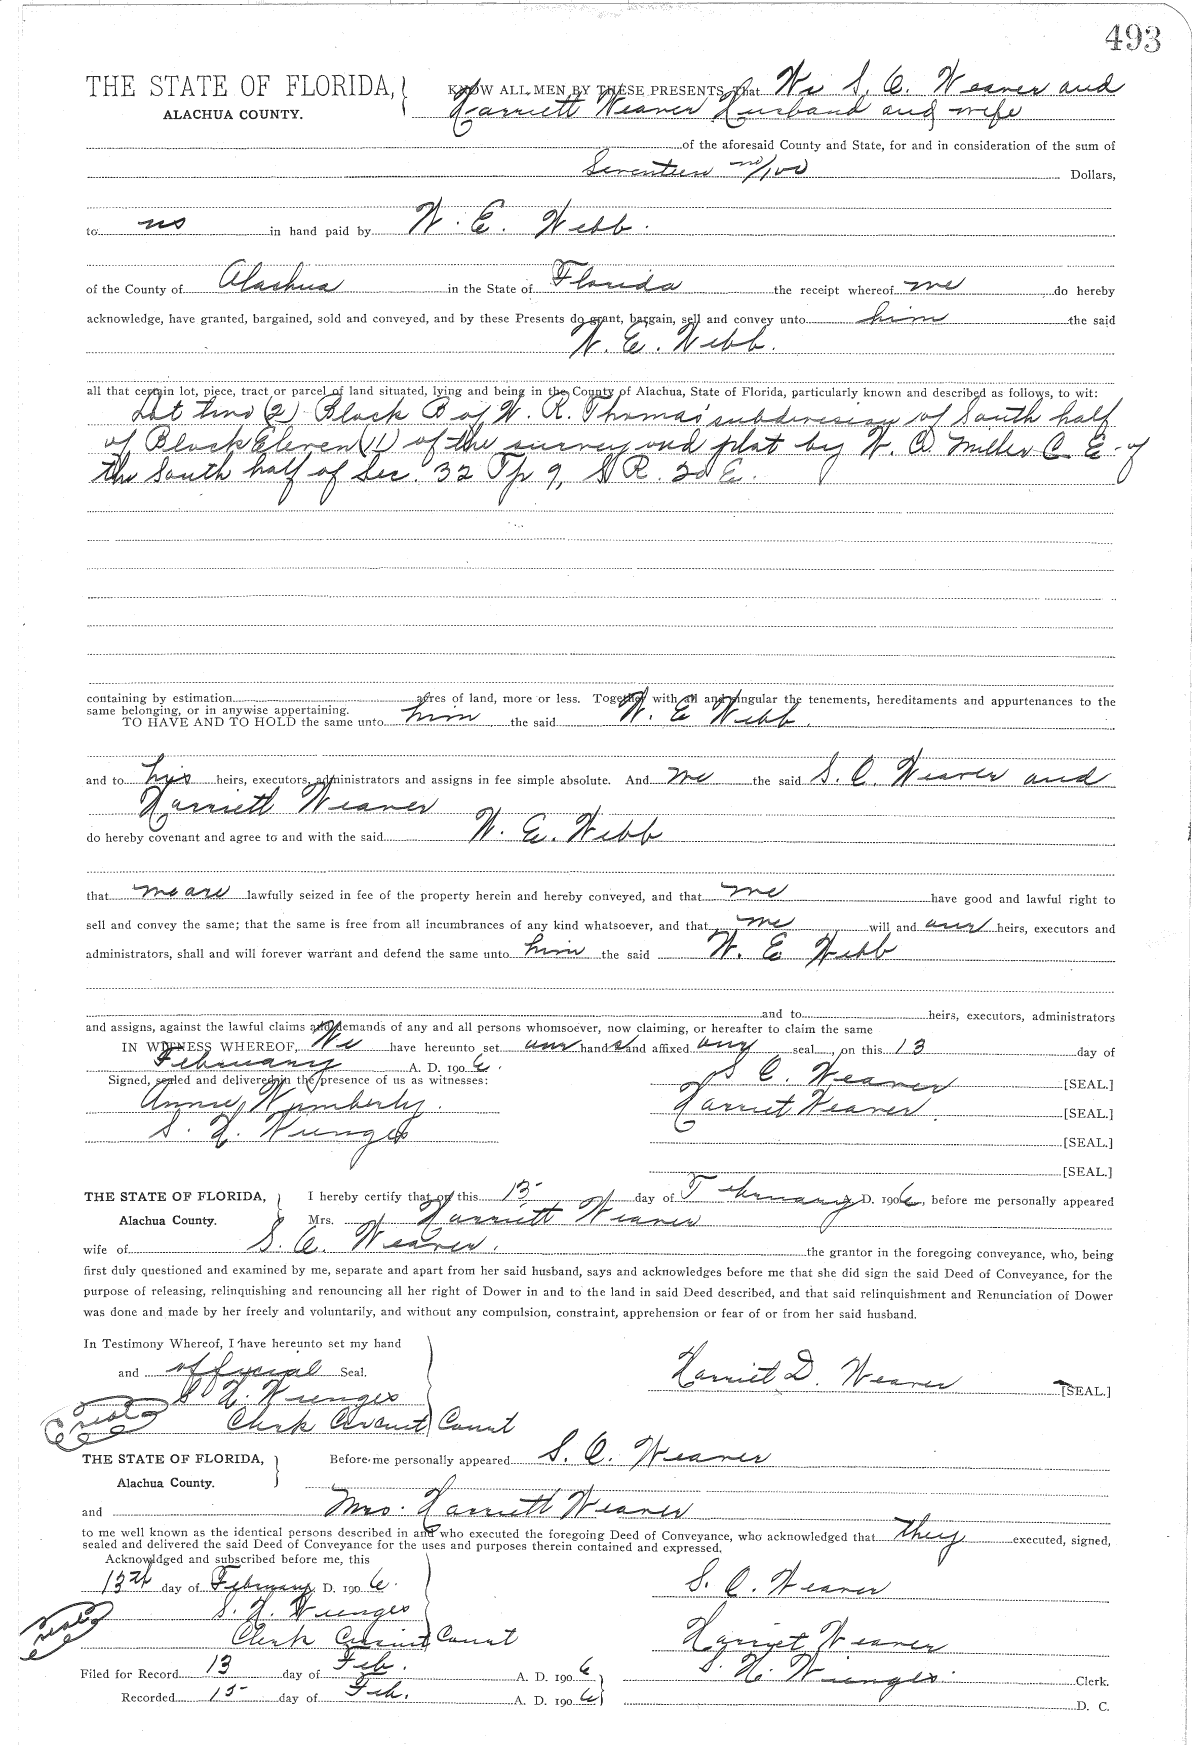 493
THE STATE OF FLORIDA, KNOW ALL MEN BY THESE PRESENTS, That We S. C. Weaver and
ALACHUA COUNTY. Harriett Weaver Husband and wife
of the aforesaid County and State, for and in consideration of the sum of
Seventeen no/100 Dollars,
to us in hand paid by W. E. Webb.
of the County of Alachua in the State of Florida the receipt whereof we do hereby
acknowledge, have granted, bargained, sold and conveyed, and by these Presents do grant, bargain, sell and convey unto him the said
W. E. Webb.
all that certain lot, piece, tract or parcel of land situated, lying and being in the County of Alachua, State of Florida, particularly known and described as follows, to wit:
Lot two (2) Block B of W. R. Thomas' subdivision of South half
of Block Eleven (11) of the survey and plat by W. A. Miller C. E. of
the South half of Sec. 32 Tp 9, S R. 20 E.
containing by estimation acres of land, more or less. Together with all and singular the tenements, hereditaments and appurtenances to the
same belonging, or in anywise appertaining.
TO HAVE AND TO HOLD the same unto him the said W. E. Webb.
and to his heirs, executors, administrators and assigns in fee simple absolute. And we the said S. C. Weaver and
Harriett Weaver
do hereby covenant and agree to and with the said W. E. Webb
that we are lawfully seized in fee of the property herein and hereby conveyed, and that we have good and lawful right to
sell and convey the same; that the same is free from all incumbrances of any kind whatsoever, and that we will and our heirs, executors and
administrators, shall and will forever warrant and defend the same unto him the said W. E. Webb
and to heirs, executors, administrators
and assigns, against the lawful claims and demands of any and all persons whomsoever, now claiming, or hereafter to claim the same
IN WITNESS WHEREOF, We have hereunto set our hands and affixed our seal on this 13 day of
February A. D. 1906.
Signed, sealed and delivered in the presence of us as witnesses: S C. Weaver [SEAL.]
Annie Wimberly. Harriet Weaver. [SEAL.]
S. H. Wienges [SEAL.]
[SEAL.]
THE STATE OF FLORIDA, I hereby certify that on this 13 day of February A. D. 1906, before me personally appeared
Alachua County. Mrs. Harriett Weaver
wife of S. C. Weaver. the grantor in the foregoing conveyance, who, being
first duly questioned and examined by me, separate and apart from her said husband, says and acknowledges before me that she did sign the said Deed of Conveyance, for the
purpose of releasing, relinquishing and renouncing all her right of Dower in and to the land in said Deed described, and that said relinquishment and Renunciation of Dower
was done and made by her freely and voluntarily, and without any compulsion, constraint, apprehension or fear of or from her said husband.
In Testimony Whereof, I have hereunto set my hand
and official Seal. Harriet D. Weaver [SEAL.]
S H. Wienges
seal Clerk Circuit Court
THE STATE OF FLORIDA, Before me personally appeared S. C. Weaver
Alachua County.
and Mrs. Harriett Weaver
to me well known as the identical persons described in and who executed the foregoing Deed of Conveyance, who acknowledged that they executed, signed,
sealed and delivered the said Deed of Conveyance for the uses and purposes therein contained and expressed.
Acknowldged and subscribed before me, this
13th day of February D. 1906. S. C. Weaver
S. H. Wienges
seal Clerk Circuit Court Harriet Weaver
Filed for Record 13 day of Feb. A. D. 1906 S. H. Wienges. Clerk.
Recorded 15 day of Feb. A. D. 1906 D. C.